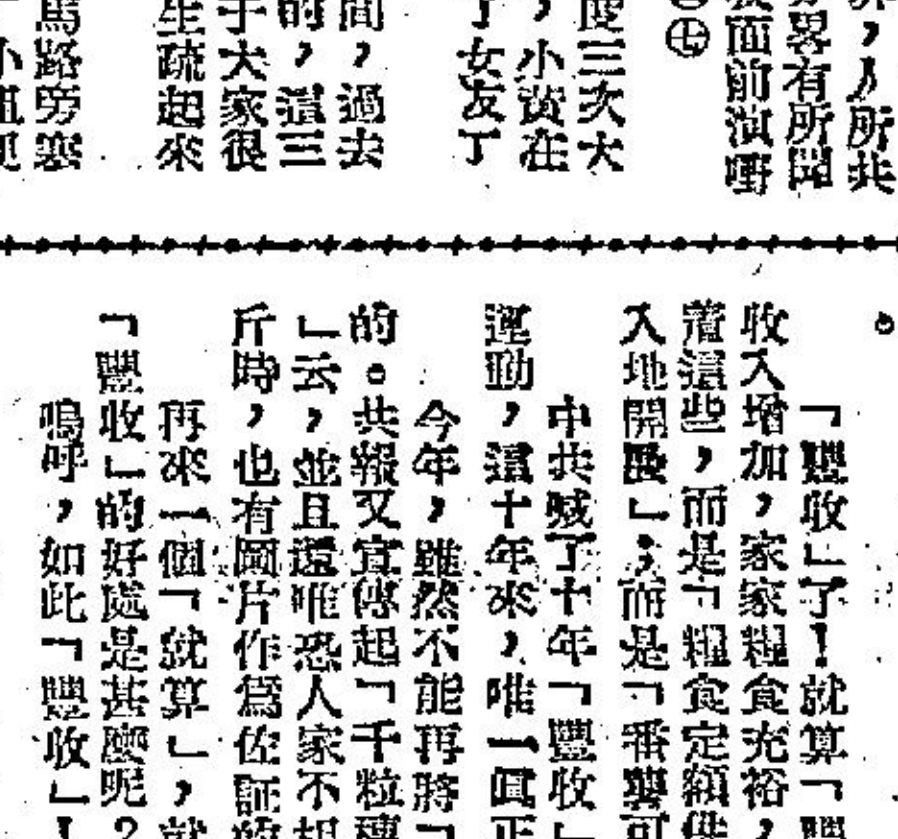 所共
畧有所聞
面前演嘢
㊆
度三次大
，小黄在
了女友丁
間，過去
的，這三
于大家很
生疏起來
馬路旁塞
「豐收」了！就算「
收入增加，家家糧食充裕，
這些，而是「糧食定額供
入地開墾」；而是「番薯可
中共喊了十年「豐收」
運動，這十年來，唯一眞正
今年，雖然不能再將「
的。共報又宣傳起「千粒穗
」云，並且還唯恐人家不相
斤時，也有圖片作爲佐証的
再來一個「就算」，就
「豐收」的好處是甚麽呢？
嗚呼，如此「豐收」！